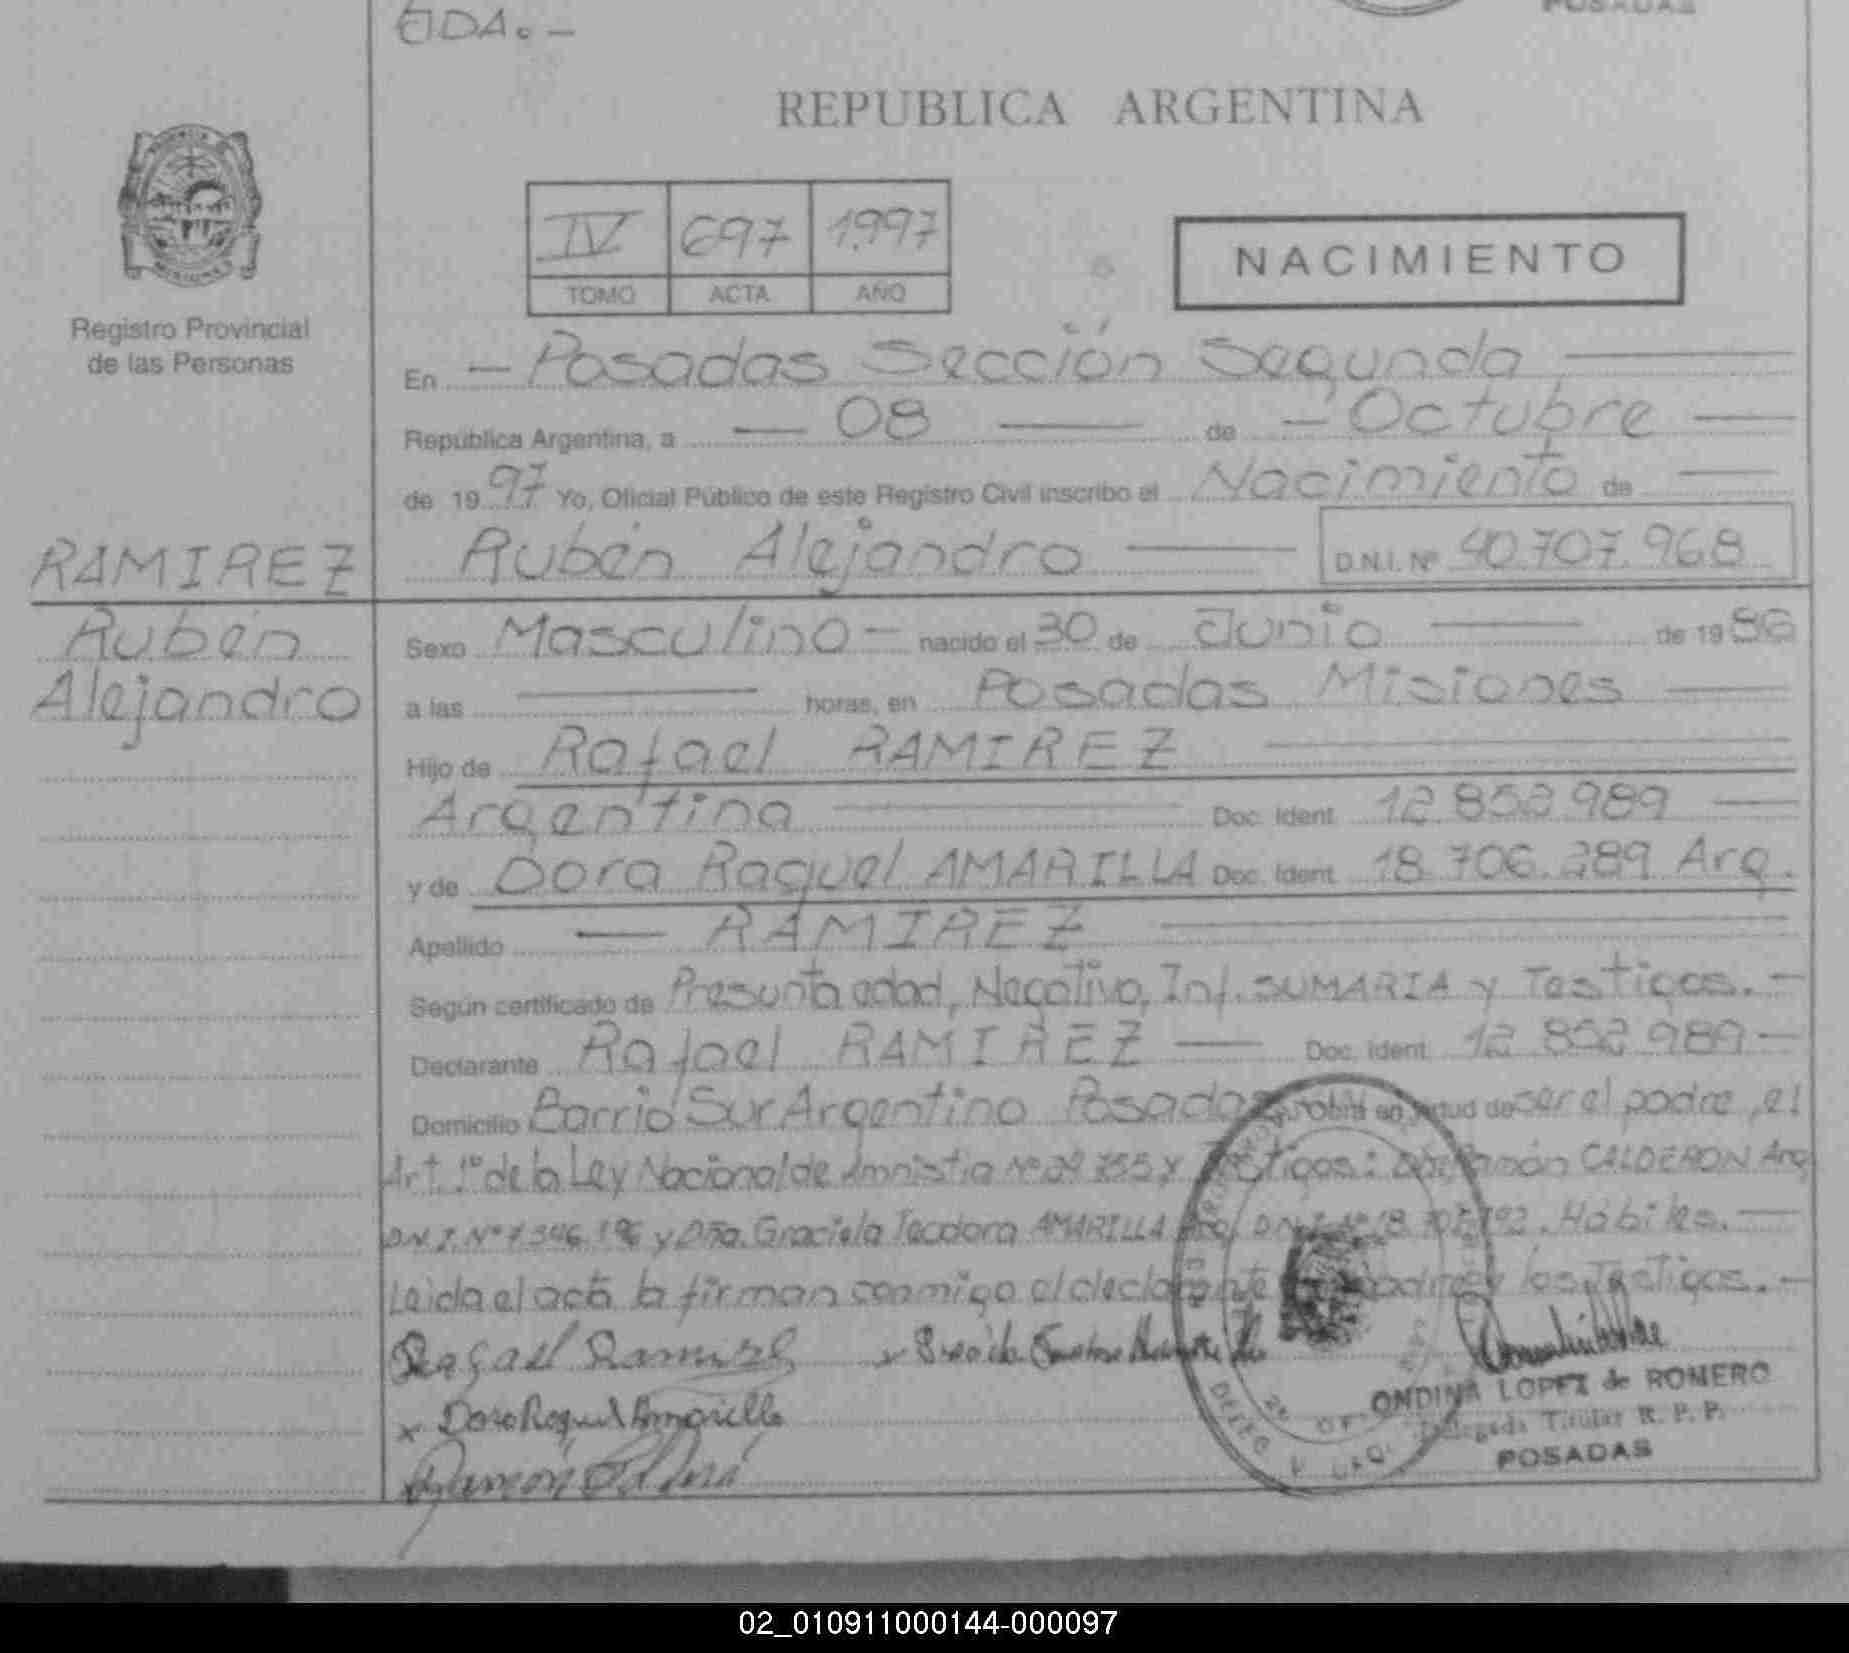 EJDA. -
POSADAS
REPUBLICA ARGENTINA
IV 697 1.997
TOMO ACTA AÑO
NACIMIENTO
Registro Provincial
de las Personas
En - Posadas Sección Segunda
República Argentina, a 08 de - Octubre
de 19 97 Yo, Oficial Público de este Registro Civil inscribo el Nacimiento de
RAMIREZ Rubén Alejandro D.N.I. Nº 40.707.968
Rubén
Alejandro
Sexo Masculino - nacido el 30 de Junio de 19 86
a las horas, en Posadas Misiones
Hijo de Rafael RAMIREZ
Argentina Doc. Ident. 12.852.989
y de Dora Raquel AMARILLA Doc. Ident. 18.706.289 Arg.
Apellido RAMIREZ
Según certificado de Presunta edad, Negativo, Inf. SUMARIA y Testigos. -
Declarante Rafael RAMIREZ Doc. Ident. 12.852.989 -
Domicilio Barrio Sur Argentino Posadas obra en virtud de ser el padre, el
Art. 1º de la Ley Nacional de Amnistia Nº y Testigos: Ramón CALDERON Arg
D.N.I. Nº 7.346.196 y Dña. Graciela Teodora AMARILLA Arg. D.N.I. Nº 18. Hábiles.
Leida el acta la firman conmigo el declarante y los Testigos. -
Rafael Ramirez
x Dora Raquel Amarilla
Ramón
ONDINA LOPEZ de ROMERO
Delegada Titular R. P. P.
POSADAS
02_010911000144-000097